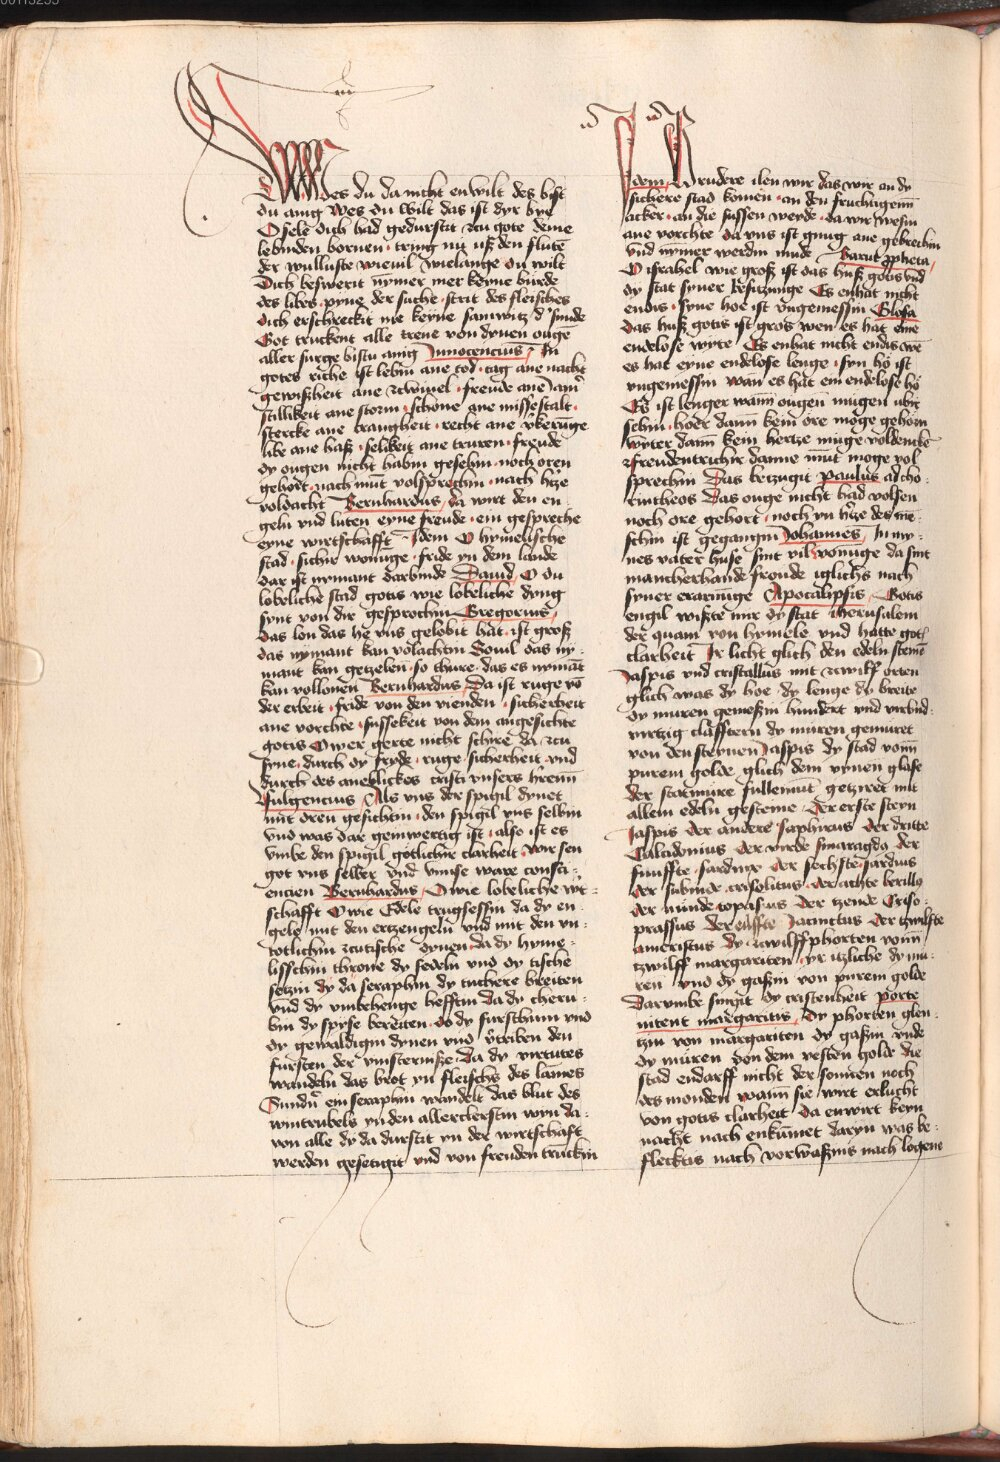 Wes du da nicht enwilt des bist
du anig Wes du wilt das ist dyr bye
O sele dich had gedurstit zcu gote deme
lebinden bornen · tring nu uß den flute
der wulluste wieuil wielange du wilt
Dich beswerit nymer mer keyne burde
des libes · pyne der suche · strit des fleisches
dich erschreckit nie keyne
Got truckent alle trene von dynen ougē
aller surge bistu anig Innocencius · In
gotes riche ist lebin ane tod · tag ane nacht
gewißheit ane zcwiuel · freude ane
stillikeit ane storm · schone ane missestalt ·
stercke ane krangheit · recht ane
libe ane haß · selikeit ane truren · freude
dy ougen nicht habin gesehin · noch oren
gehort · nach mūt volsprechin · nach
voldacht Bernhardus · da wirt den en
geln und luten eyne freude · ein gespreche
eyne wirtschafft · Idem O hymelische
stad · sichir wonūge · fride yn dem lande
dar ist nymant darbinde Dauid O du
lobeliche stad gotis wie lobeliche dyng
synt von dir gesprochin Gregorius ·
das lon das he vns gelobit hat · ist groß
das nymant kan volachten Souil das ny
mant kan getzelen · so thure · das es nymāt
kan vollonen Bernhardus Da ist ruge vō
der erbeit · fride von den vienden · sicherheit
ane vorchte · sussekeit von dem angesichte
gotis O wer gerte nicht schire da zcu
syne · durch dy fryde · ruge · sicherheit und
durch des aneblickes cristi unsers hrenn
Fulgencius Als uns der spigil dynet
mit dren gesichtin · den spigil vns selbin
und was dar geinwertig ist · also ist es
umbe den spigil gotlichir clarheit · wir sen
got vns selber und unnse ware consci
encien Bernhardus O wie lobeliche wt
schafft O wie Edele trugsessin da dy en
gele mit den ertzengeln und mit den vn
totlichin zcutische dynen · da dy hyme
lisschin throne dy sedeln und dy tische
setzin dy da seraphin dy tuchere breiten
und dy umbehenge hefftin da dy cheru
bin dy spyse bereiten · do dy furstthum und
dy gewaldigin dynen und v̄triben den
fursten der vinsternisze da dy virtutes
wandeln das brot yn fleischs des lāmes
Sundir ein seraphin wandelt das blut des
wintrubels yn den allerclerstin wyn da
von alle dy da durstit yn der wirtschaft
werden gesetigit und von freuden trunckin
Idem Brudere ilen wir das wir an dy
sichere stad komen · an den fruchtigenn
acker · an die sussen weyde · da wir wesin
ane vorchte da vns ist gnug ane gebrechin
und nymer werdin mude Baruc ppheta
O israhel wie groß ist das huß gotis und
dy stat syner besitzunge Es enhat nicht
endis · syne hoe ist ungemessin Glosa
das huß gotis ist gros wen es hat eine
endelose wyte Es enhat nicht endis wē
es hat eyne endelose lenge · syn hō ist
ungemessin wan es hat ein endelose hō
Es ist lenger wann ougen mugen ubir
sehin · hoer dann kein ore moge gehorn
wyter dann kein hertze muge voldencke
freudentrichir danne mūt moge vol
sprechin Das betzugit Paulus ad cho
rintheos Das ouge nicht had volsen
noch ore gehort · noch yn h̄tze des mē
schin ist gegangin Johannes · In my
nes vater huse sint vil wōnūge da sint
mancherhande freude iglichs nach
syner erarnūge Apocalipsis · Gotis
engil wißte mir dy stat iherusalem
der quam von hymele und hatte got
clarheit Ir licht glich den edeln steinē
Jaspis und cristallus mit zcwilff orten
glich was dy hoe dy lenge dy breite
dy muren gemeßin hundert und virund
virtzig clafftern dy muren gemuret
von den steynen Jaspis dy stad vonn
purem golde glich dem vynen glase
der statmure fullemut getziret mit
allem edeln gesteine der erste steyn
Jaspis der andere saphirus der dritte
Calcidonius der virde smaragdo der
funffte sardinx der sechste sardius
der subinde crisolitus der achte berillo
der nunde topasius der tzende Criso
prassus der eilffte Jacinctus der tzwilfte
ametistus dy zcwilff phorten vonn
tzwilff margariten · yr itzliche dy mu
ren und dy gaßin von purem golde
Darumbe singit dy cristenheit porte
nitent margaritis Dy phorten glen
tzin von margariten dy gaßin unde
dy muren von dem vesten golde die
stad endarff nicht der sonnen noch
des monden wann sie wirt erlucht
von gotis clarheit da enwirt keyn
nacht nach enkūmet daryn was be
flecktis nach vorwaßnis nach logene